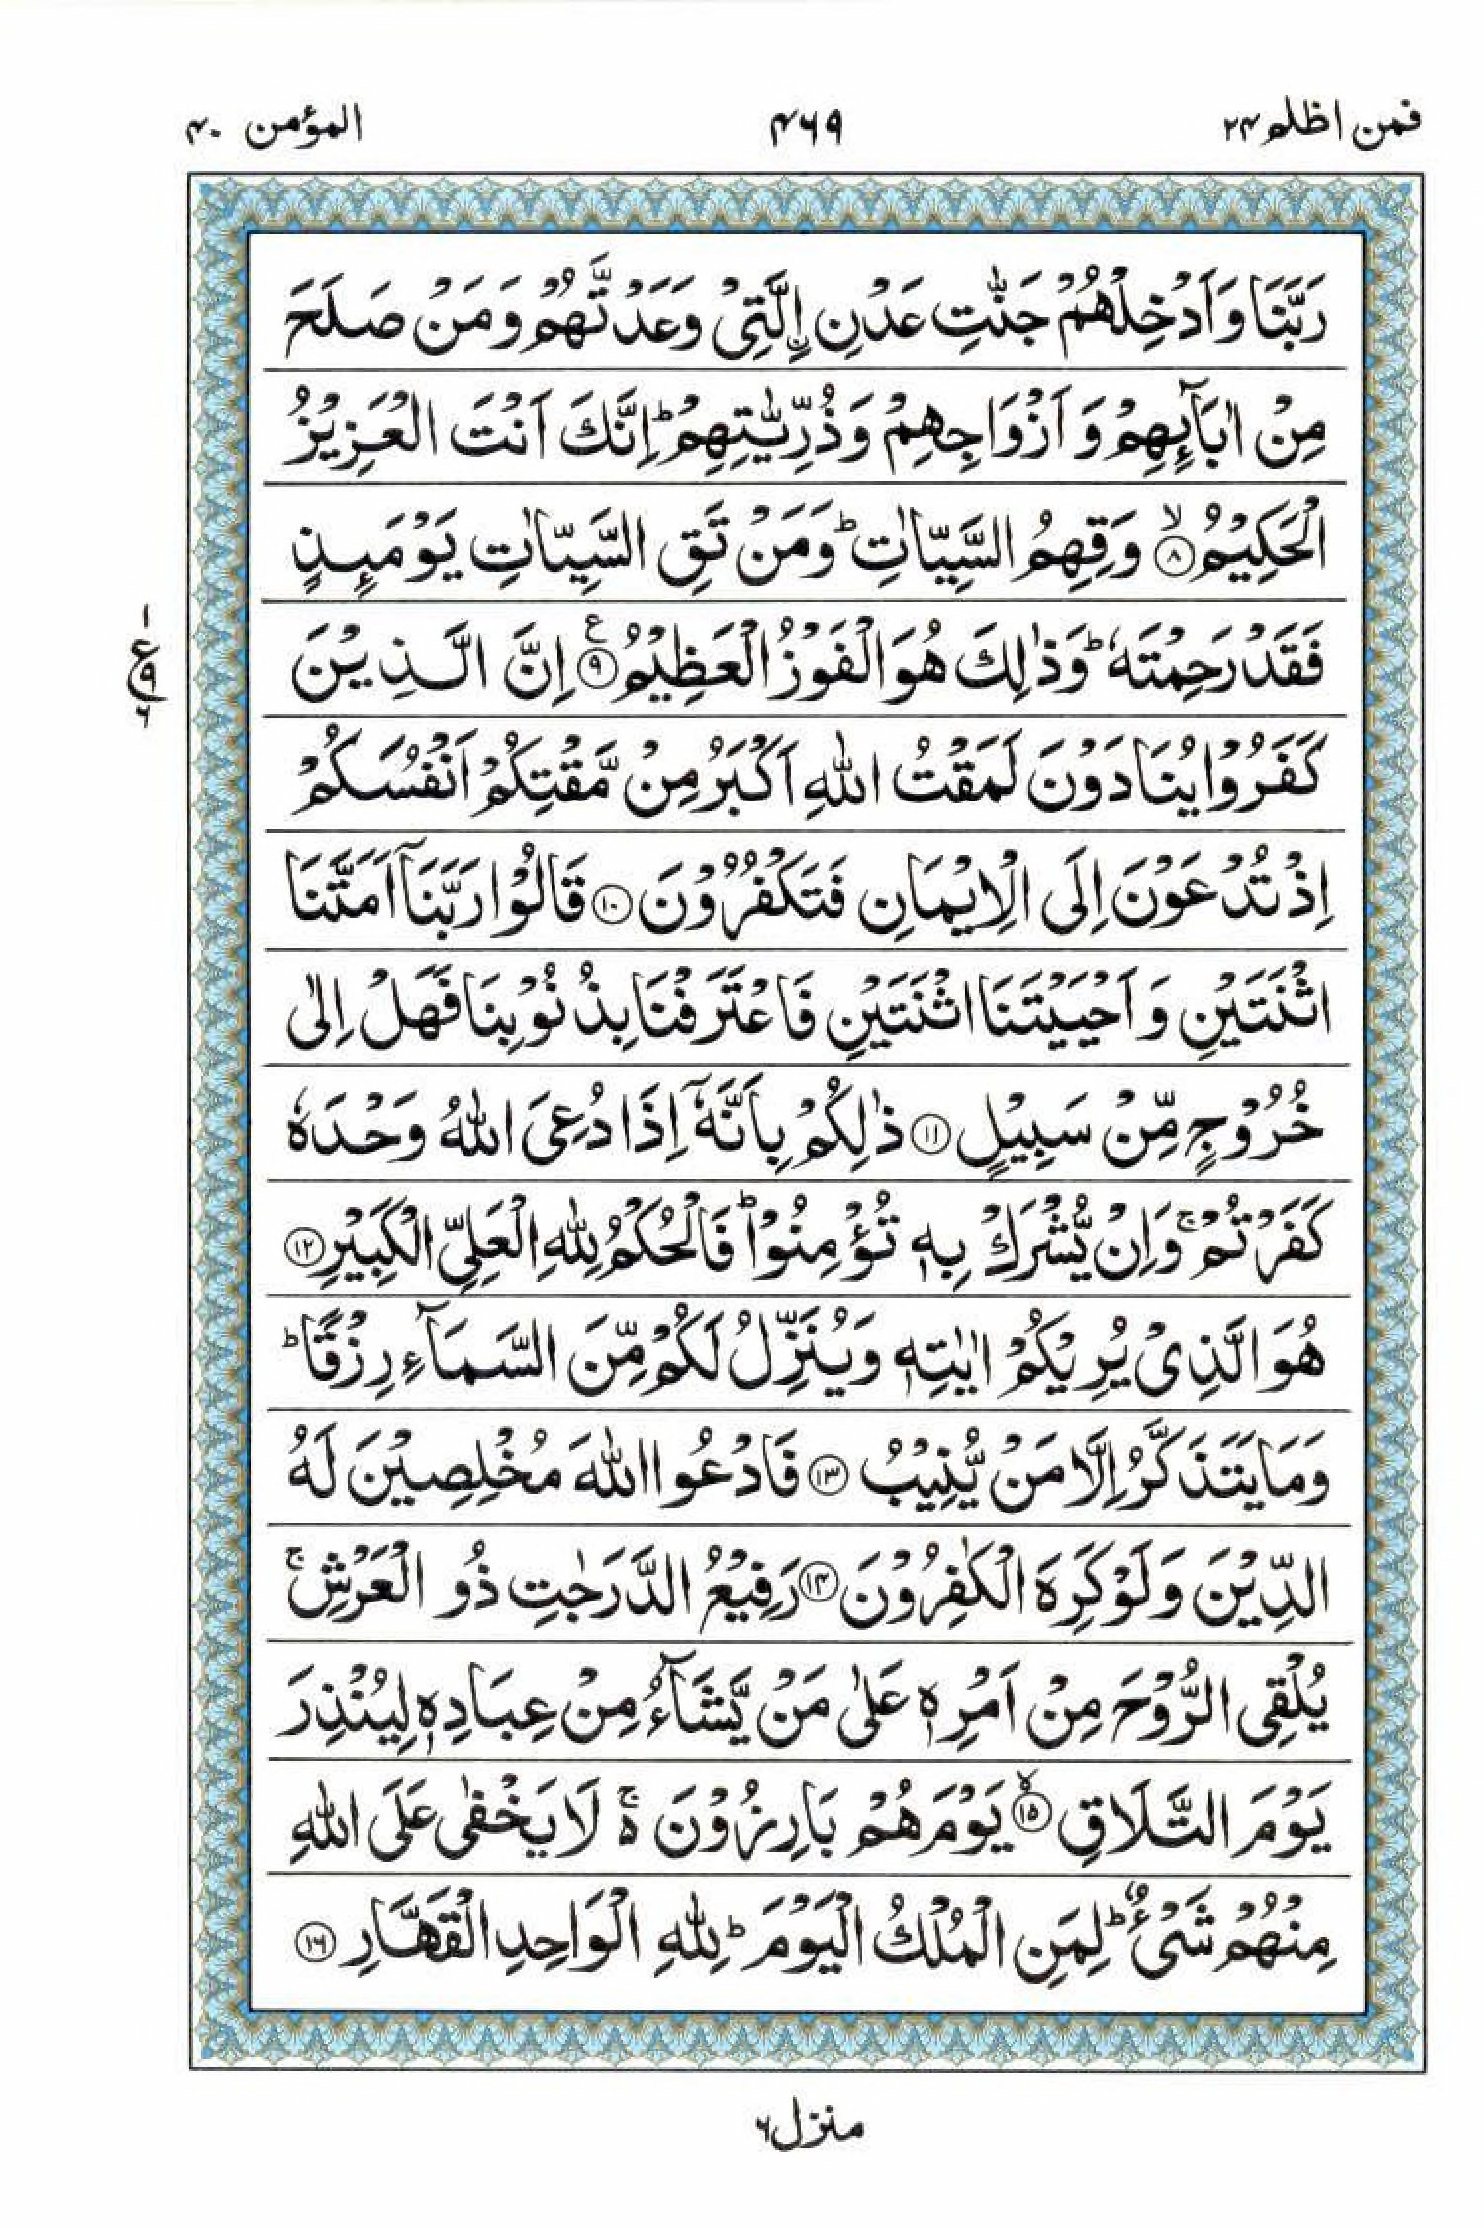 فمن اظلم ٢٤
٤٦٩
المؤمن ٤٠
رَبَّنَا وَاَدْخِلْهُمْ جَنّٰتِ عَدْنِ اِۨلَّتِىْ وَعَدْتَّهُمْ وَمَنْ صَلَحَ
مِنْ اٰبَآٮِٕهِمْ وَاَزْوَاجِهِمْ وَذُرِّيّٰتِهِمْ ؕ اِنَّكَ اَنْتَ الْعَزِيْزُ
الْحَكِيْمُ ۙ‏﴿۸﴾ وَقِهِمُ السَّيِّاٰتِ ؕ وَمَنْ تَقِ السَّيِّاٰتِ يَوْمَٮِٕذٍ
فَقَدْ رَحِمْتَهٗ ؕ وَذٰلِكَ هُوَ الْفَوْزُ الْعَظِيْمُ ﴿۹﴾ ع اِنَّ الَّذِيْنَ
١ ع ٩ ٦
كَفَرُوْا يُنَادَوْنَ لَمَقْتُ اللّٰهِ اَكْبَرُ مِنْ مَّقْتِكُمْ اَنْفُسَكُمْ
اِذْ تُدْعَوْنَ اِلَى الْاِيْمَانِ فَتَكْفُرُوْنَ ﴿۱۰﴾ قَالُوْا رَبَّنَاۤ اَمَتَّنَا
اثْنَتَيْنِ وَاَحْيَيْتَنَا اثْنَتَيْنِ فَاعْتَرَفْنَا بِذُنُوْبِنَا فَهَلْ اِلٰى
خُرُوْجٍ مِّنْ سَبِيْلٍ ﴿۱۱﴾ ذٰلِكُمْ بِاَنَّهٗۤ اِذَا دُعِىَ اللّٰهُ وَحْدَهٗ
كَفَرْتُمْ ۚ وَاِنْ يُّشْرَكْ بِهٖ تُؤْمِنُوْا ؕ فَالْحُكْمُ لِلّٰهِ الْعَلِىِّ الْكَبِيْرِ ﴿۱۲﴾
هُوَ الَّذِىْ يُرِيْكُمْ اٰيٰتِهٖ وَيُنَزِّلُ لَكُمْ مِّنَ السَّمَآءِ رِزْقًا ؕ
وَمَا يَتَذَكَّرُ اِلَّا مَنْ يُّنِيْبُ ﴿۱۳﴾ فَادْعُوا اللّٰهَ مُخْلِصِيْنَ لَهُ
الدِّيْنَ وَلَوْ كَرِهَ الْكٰفِرُوْنَ ﴿۱۴﴾ رَفِيْعُ الدَّرَجٰتِ ذُو الْعَرْشِ ۚ
يُلْقِى الرُّوْحَ مِنْ اَمْرِهٖ عَلٰى مَنْ يَّشَآءُ مِنْ عِبَادِهٖ لِيُنْذِرَ
يَوْمَ التَّلَاقِ ۙ‏﴿۱۵﴾ يَوْمَ هُمْ بَارِزُوْنَ ۚ ۵ لَا يَخْفٰى عَلَى اللّٰهِ
مِنْهُمْ شَىْءٌ ؕ لِمَنِ الْمُلْكُ الْيَوْمَ ؕ لِلّٰهِ الْوَاحِدِ الْقَهَّارِ ﴿۱۶﴾
منزل ٦